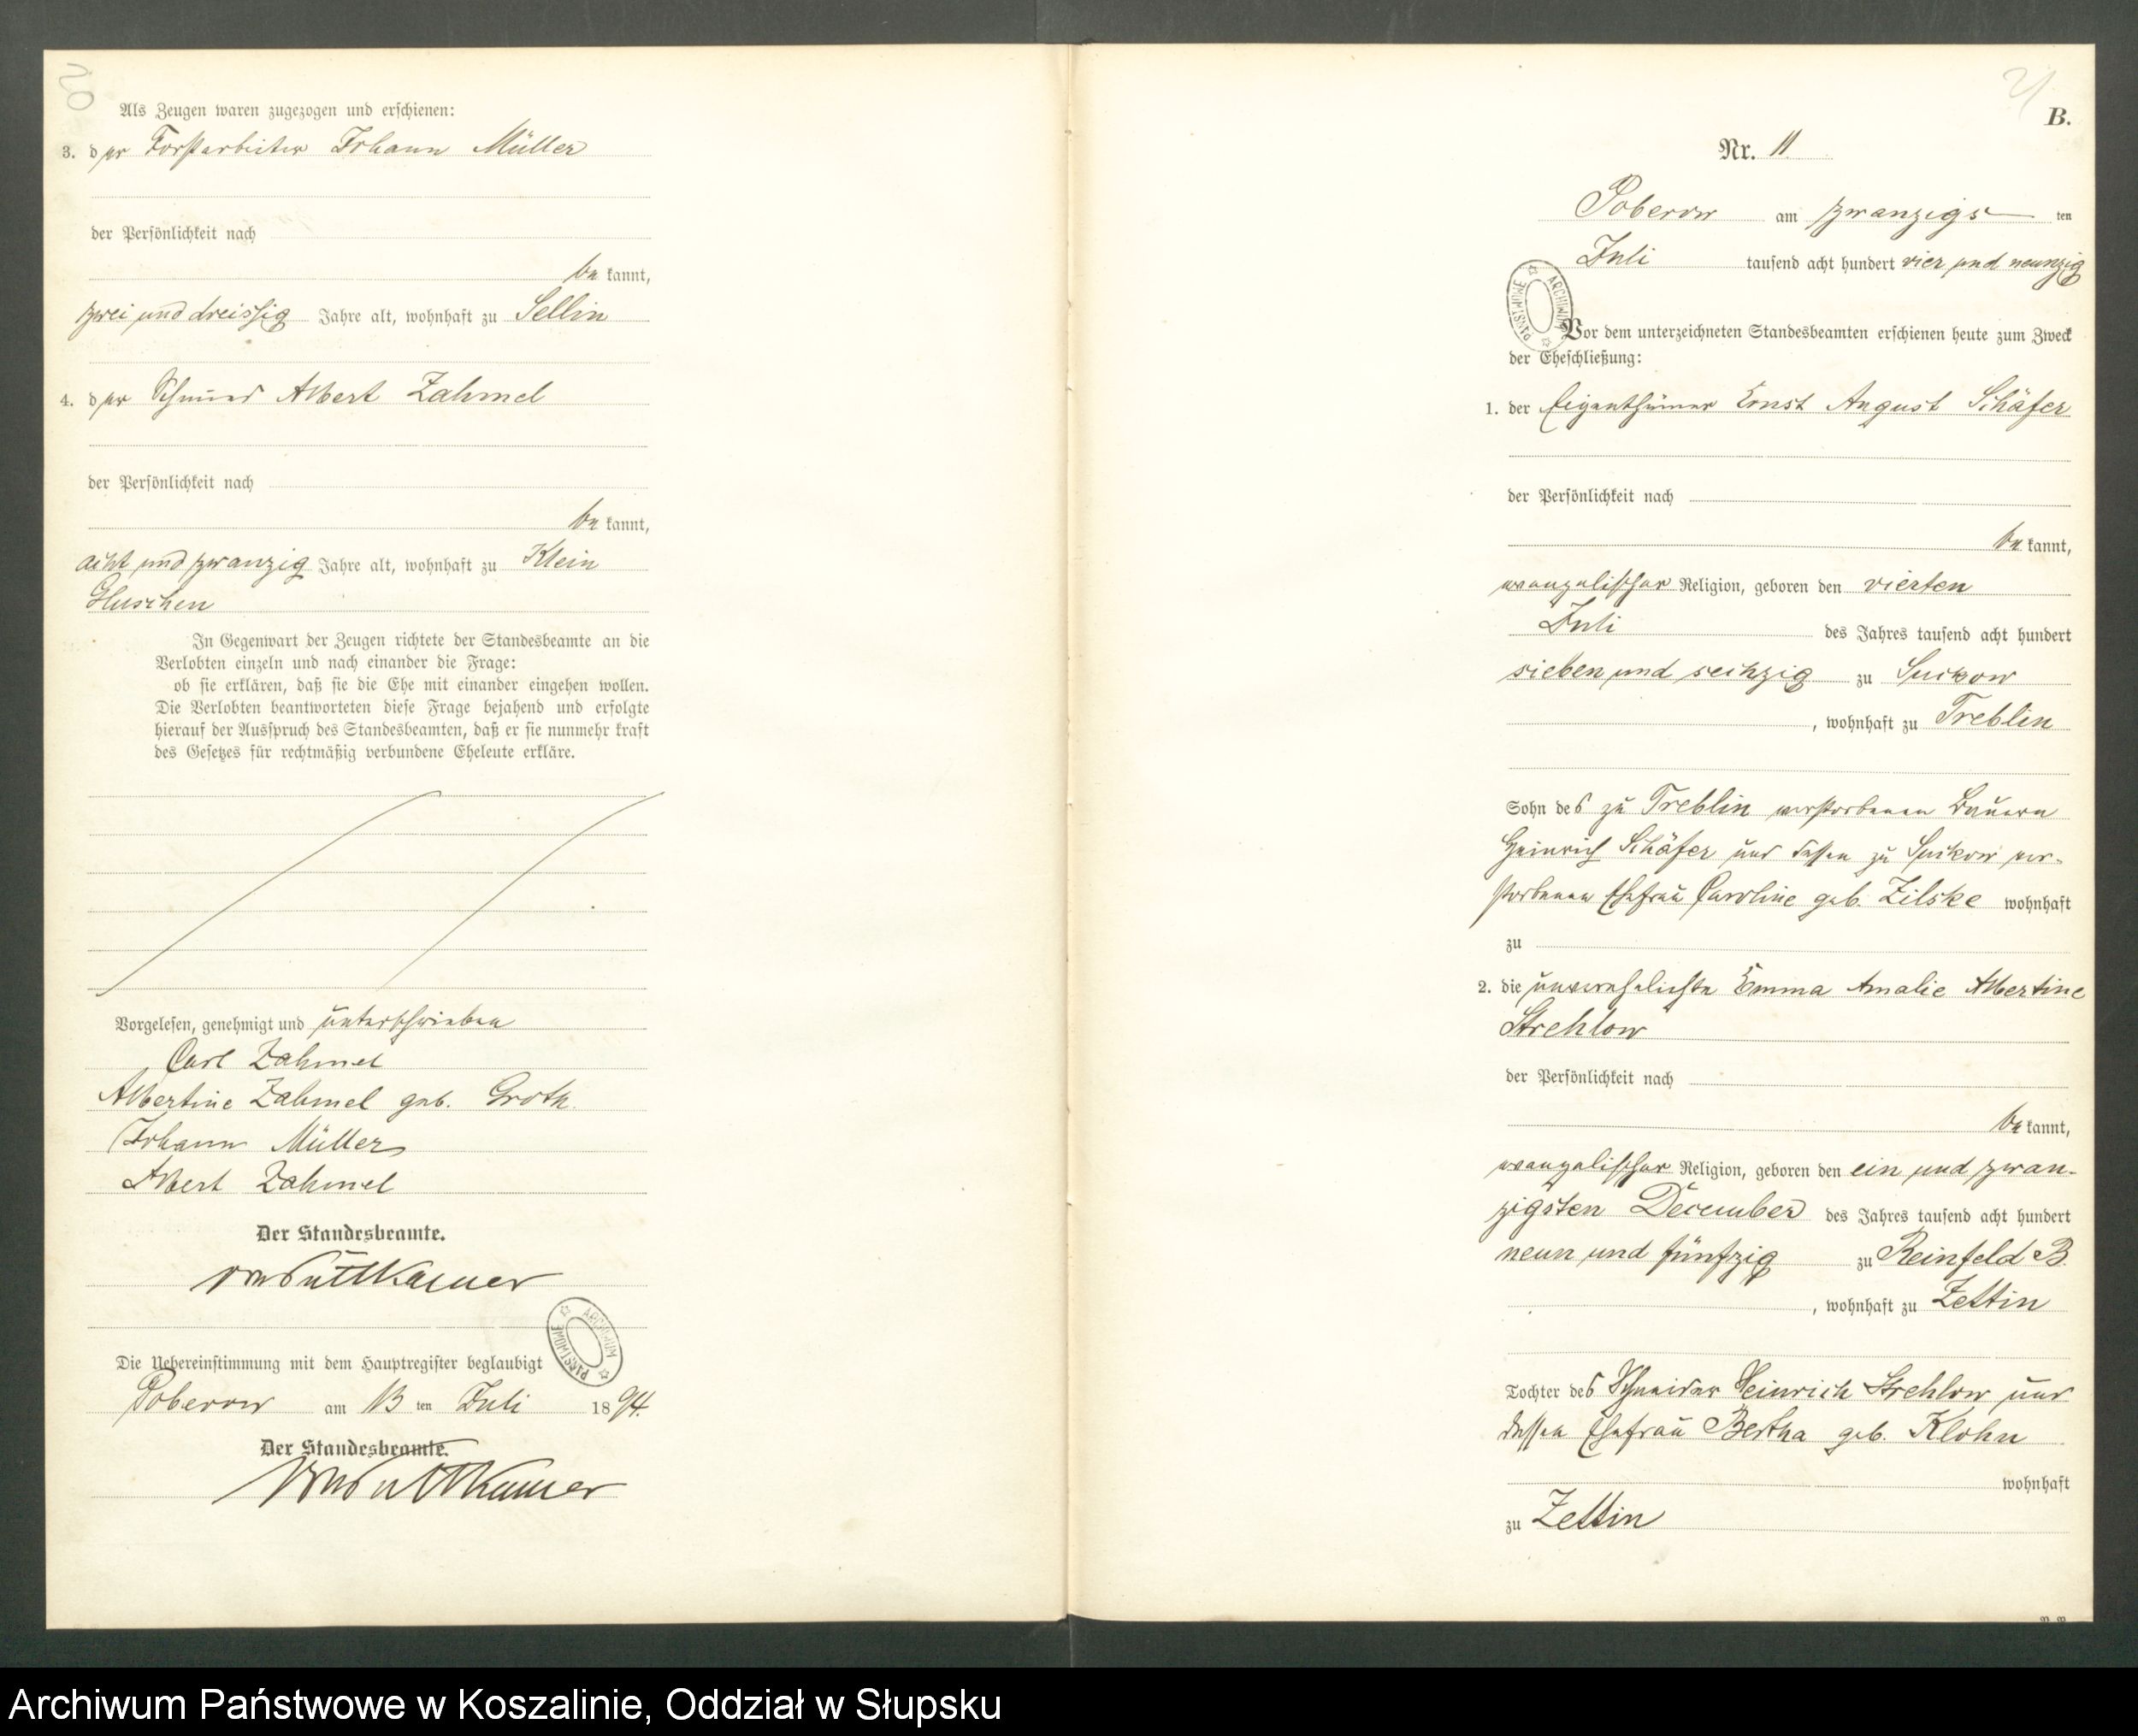 20
Als Zeugen waren zugezogen und erschienen:
3. der Forstarbeiter Johann Müller
der Persönlichkeit nach
be kannt,
zwei und dreissig Jahre alt, wohnhaft zu Sellin
4. der Schmied Albert Zahmel
der Persönlichkeit nach
be kannt,
acht und zwanzig Jahre alt, wohnhaft zu Klein
Gluschen
In Gegenwart der Zeugen richtete der Standesbeamte an die
Verlobten einzeln und nach einander die Frage:
ob sie erklären, daß sie die Ehe mit einander eingehen wollen.
Die Verlobten beantworteten diese Frage bejahend und erfolgte
hierauf der Ausspruch des Standesbeamten, daß er sie nunmehr kraft
des Gesetzes für rechtmäßig verbundene Eheleute erkläre.
Vorgelesen, genehmigt und unterschrieben
Carl Zahmel
Albertine Zahmel geb. Groth.
Johann Müller
Albert Zahmel
Der Standesbeamte.
von Puttkamer
ARCHIWUM PAŃSTWOWE
Die Uebereinstimmung mit dem Hauptregister beglaubigt
Poberow am 13 ten Juli 18 94.
Der Standesbeamte.
von Puttkamer
21
B.
Nr. 11
Poberow am zwanzigs ten
Juli tausend acht hundert vier und neunzig
ARCHIWUM PAŃSTWOWE
Vor dem unterzeichneten Standesbeamten erschienen heute zum Zweck
der Eheschließung:
1. der Eigenthümer Ernst August Schäfer
der Persönlichkeit nach
be kannt,
evangelischer Religion, geboren den vierten
Juli des Jahres tausend acht hundert
sieben und sechzig zu Suckow
, wohnhaft zu Treblin
Sohn des zu Treblin verstorbenen Bauern
Heinrich Schäfer und dessen zu Suckow ver-
storbenen Ehefrau Caroline geb. Zilske wohnhaft
zu
2. die unverehelichte Emma Amalie Albertine
Strehlow
der Persönlichkeit nach
be kannt,
evangelischer Religion, geboren den ein und zwan-
zigsten December des Jahres tausend acht hundert
neun und fünfzig zu Reinfeld B.
, wohnhaft zu Zettin
Tochter des Schneider Heinrich Strehlow und
dessen Ehefrau Bertha geb. Klohn
wohnhaft
zu Zettin
Archiwum Państwowe w Koszalinie, Oddział w Słupsku